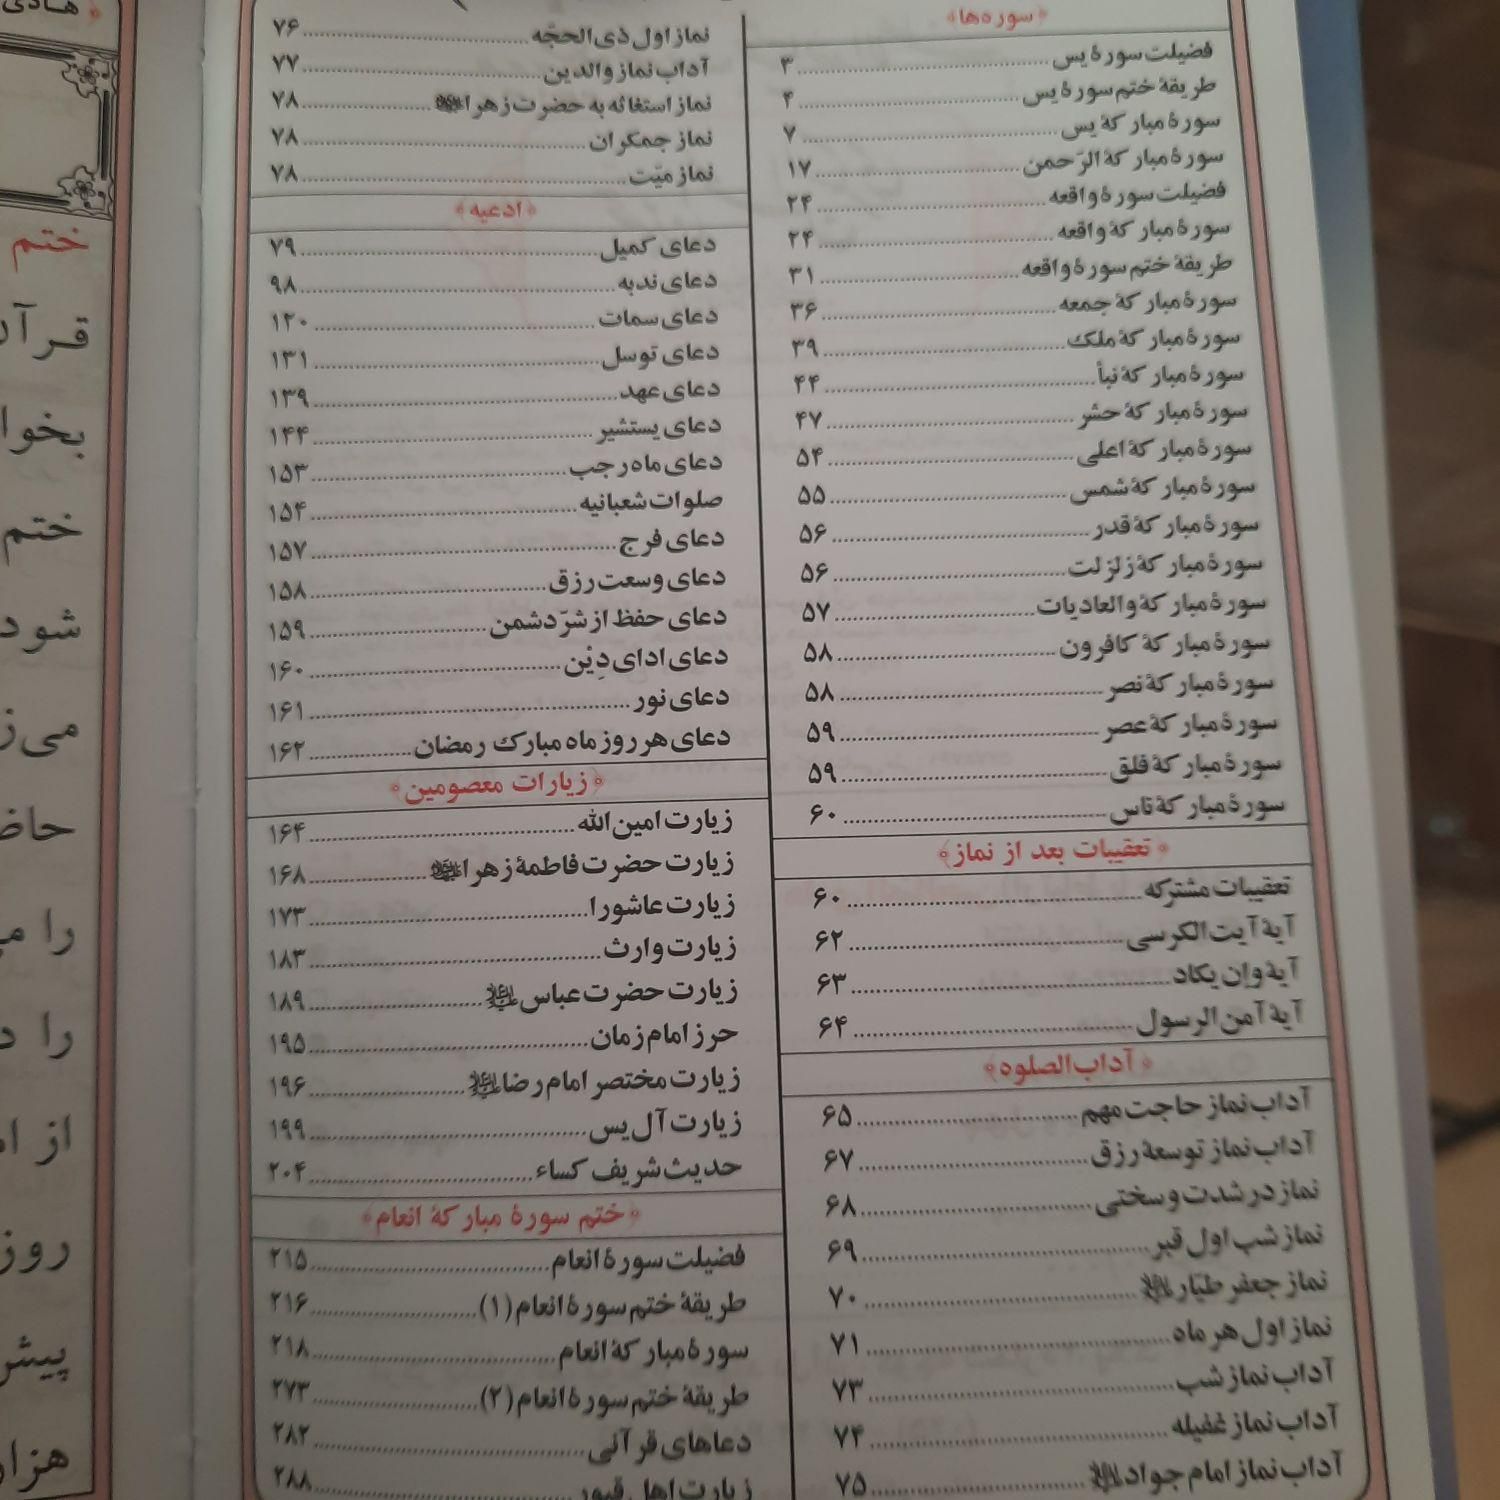 ﴿سوره‌ها﴾
فضیلت سورهٔ یس ۳
طریقهٔ ختم سورهٔ یس ۴
سورهٔ مبارکهٔ یس ۷
سورهٔ مبارکهٔ الرّحمن ۱۷
فضیلت سورهٔ واقعه ۲۴
سورهٔ مبارکهٔ واقعه ۲۴
طریقهٔ ختم سورهٔ واقعه ۳۱
سورهٔ مبارکهٔ جمعه ۳۶
سورهٔ مبارکهٔ ملک ۳۹
سورهٔ مبارکهٔ نبأ ۴۴
سورهٔ مبارکهٔ حشر ۴۷
سورهٔ مبارکهٔ اعلی ۵۴
سورهٔ مبارکهٔ شمس ۵۵
سورهٔ مبارکهٔ قدر ۵۶
سورهٔ مبارکهٔ زلزلت ۵۶
سورهٔ مبارکهٔ والعادیات ۵۷
سورهٔ مبارکهٔ کافرون ۵۸
سورهٔ مبارکهٔ نصر ۵۸
سورهٔ مبارکهٔ عصر ۵۹
سورهٔ مبارکهٔ فلق ۵۹
سورهٔ مبارکهٔ ناس ۶۰
﴿تعقیبات بعد از نماز﴾
تعقیبات مشترکه ۶۰
آیهٔ آیت الکرسی ۶۲
آیهٔ وإن یکاد ۶۳
آیهٔ آمن الرسول ۶۴
﴿آداب الصلوه﴾
آداب نماز حاجت مهم ۶۵
آداب نماز توسعهٔ رزق ۶۷
نماز در شدت و سختی ۶۸
نماز شب اول قبر ۶۹
نماز جعفر طیّار ۷۰
نماز اول هر ماه ۷۱
آداب نماز شب ۷۳
آداب نماز غفیله ۷۴
آداب نماز امام جواد ۷۵
نماز اول ذی الحجّه ۷۶
آداب نماز والدین ۷۷
نماز استغاثه به حضرت زهرا ۷۸
نماز جمکران ۷۸
نماز میّت ۷۸
﴿ادعیه﴾
دعای کمیل ۷۹
دعای ندبه ۹۸
دعای سمات ۱۲۰
دعای توسل ۱۳۱
دعای عهد ۱۳۹
دعای یستشیر ۱۴۴
دعای ماه رجب ۱۵۳
صلوات شعبانیه ۱۵۴
دعای فرج ۱۵۷
دعای وسعت رزق ۱۵۸
دعای حفظ از شرّ دشمن ۱۵۹
دعای ادای دِیْن ۱۶۰
دعای نور ۱۶۱
دعای هر روز ماه مبارک رمضان ۱۶۲
﴿زیارات معصومین﴾
زیارت امین الله ۱۶۴
زیارت حضرت فاطمهٔ زهرا ۱۶۸
زیارت عاشورا ۱۷۳
زیارت وارث ۱۸۳
زیارت حضرت عباس ۱۸۹
حرز امام زمان ۱۹۵
زیارت مختصر امام رضا ۱۹۶
زیارت آل یس ۱۹۹
حدیث شریف کساء ۲۰۴
﴿ختم سورهٔ مبارکهٔ انعام﴾
فضیلت سورهٔ انعام ۲۱۵
طریقهٔ ختم سورهٔ انعام (۱) ۲۱۶
سورهٔ مبارکهٔ انعام ۲۱۸
طریقهٔ ختم سورهٔ انعام (۲) ۲۷۳
دعاهای قرآنی ۲۸۲
زیارت اهل قبور ۲۸۸
ختم
بخوا
ختم
شود
از
روز